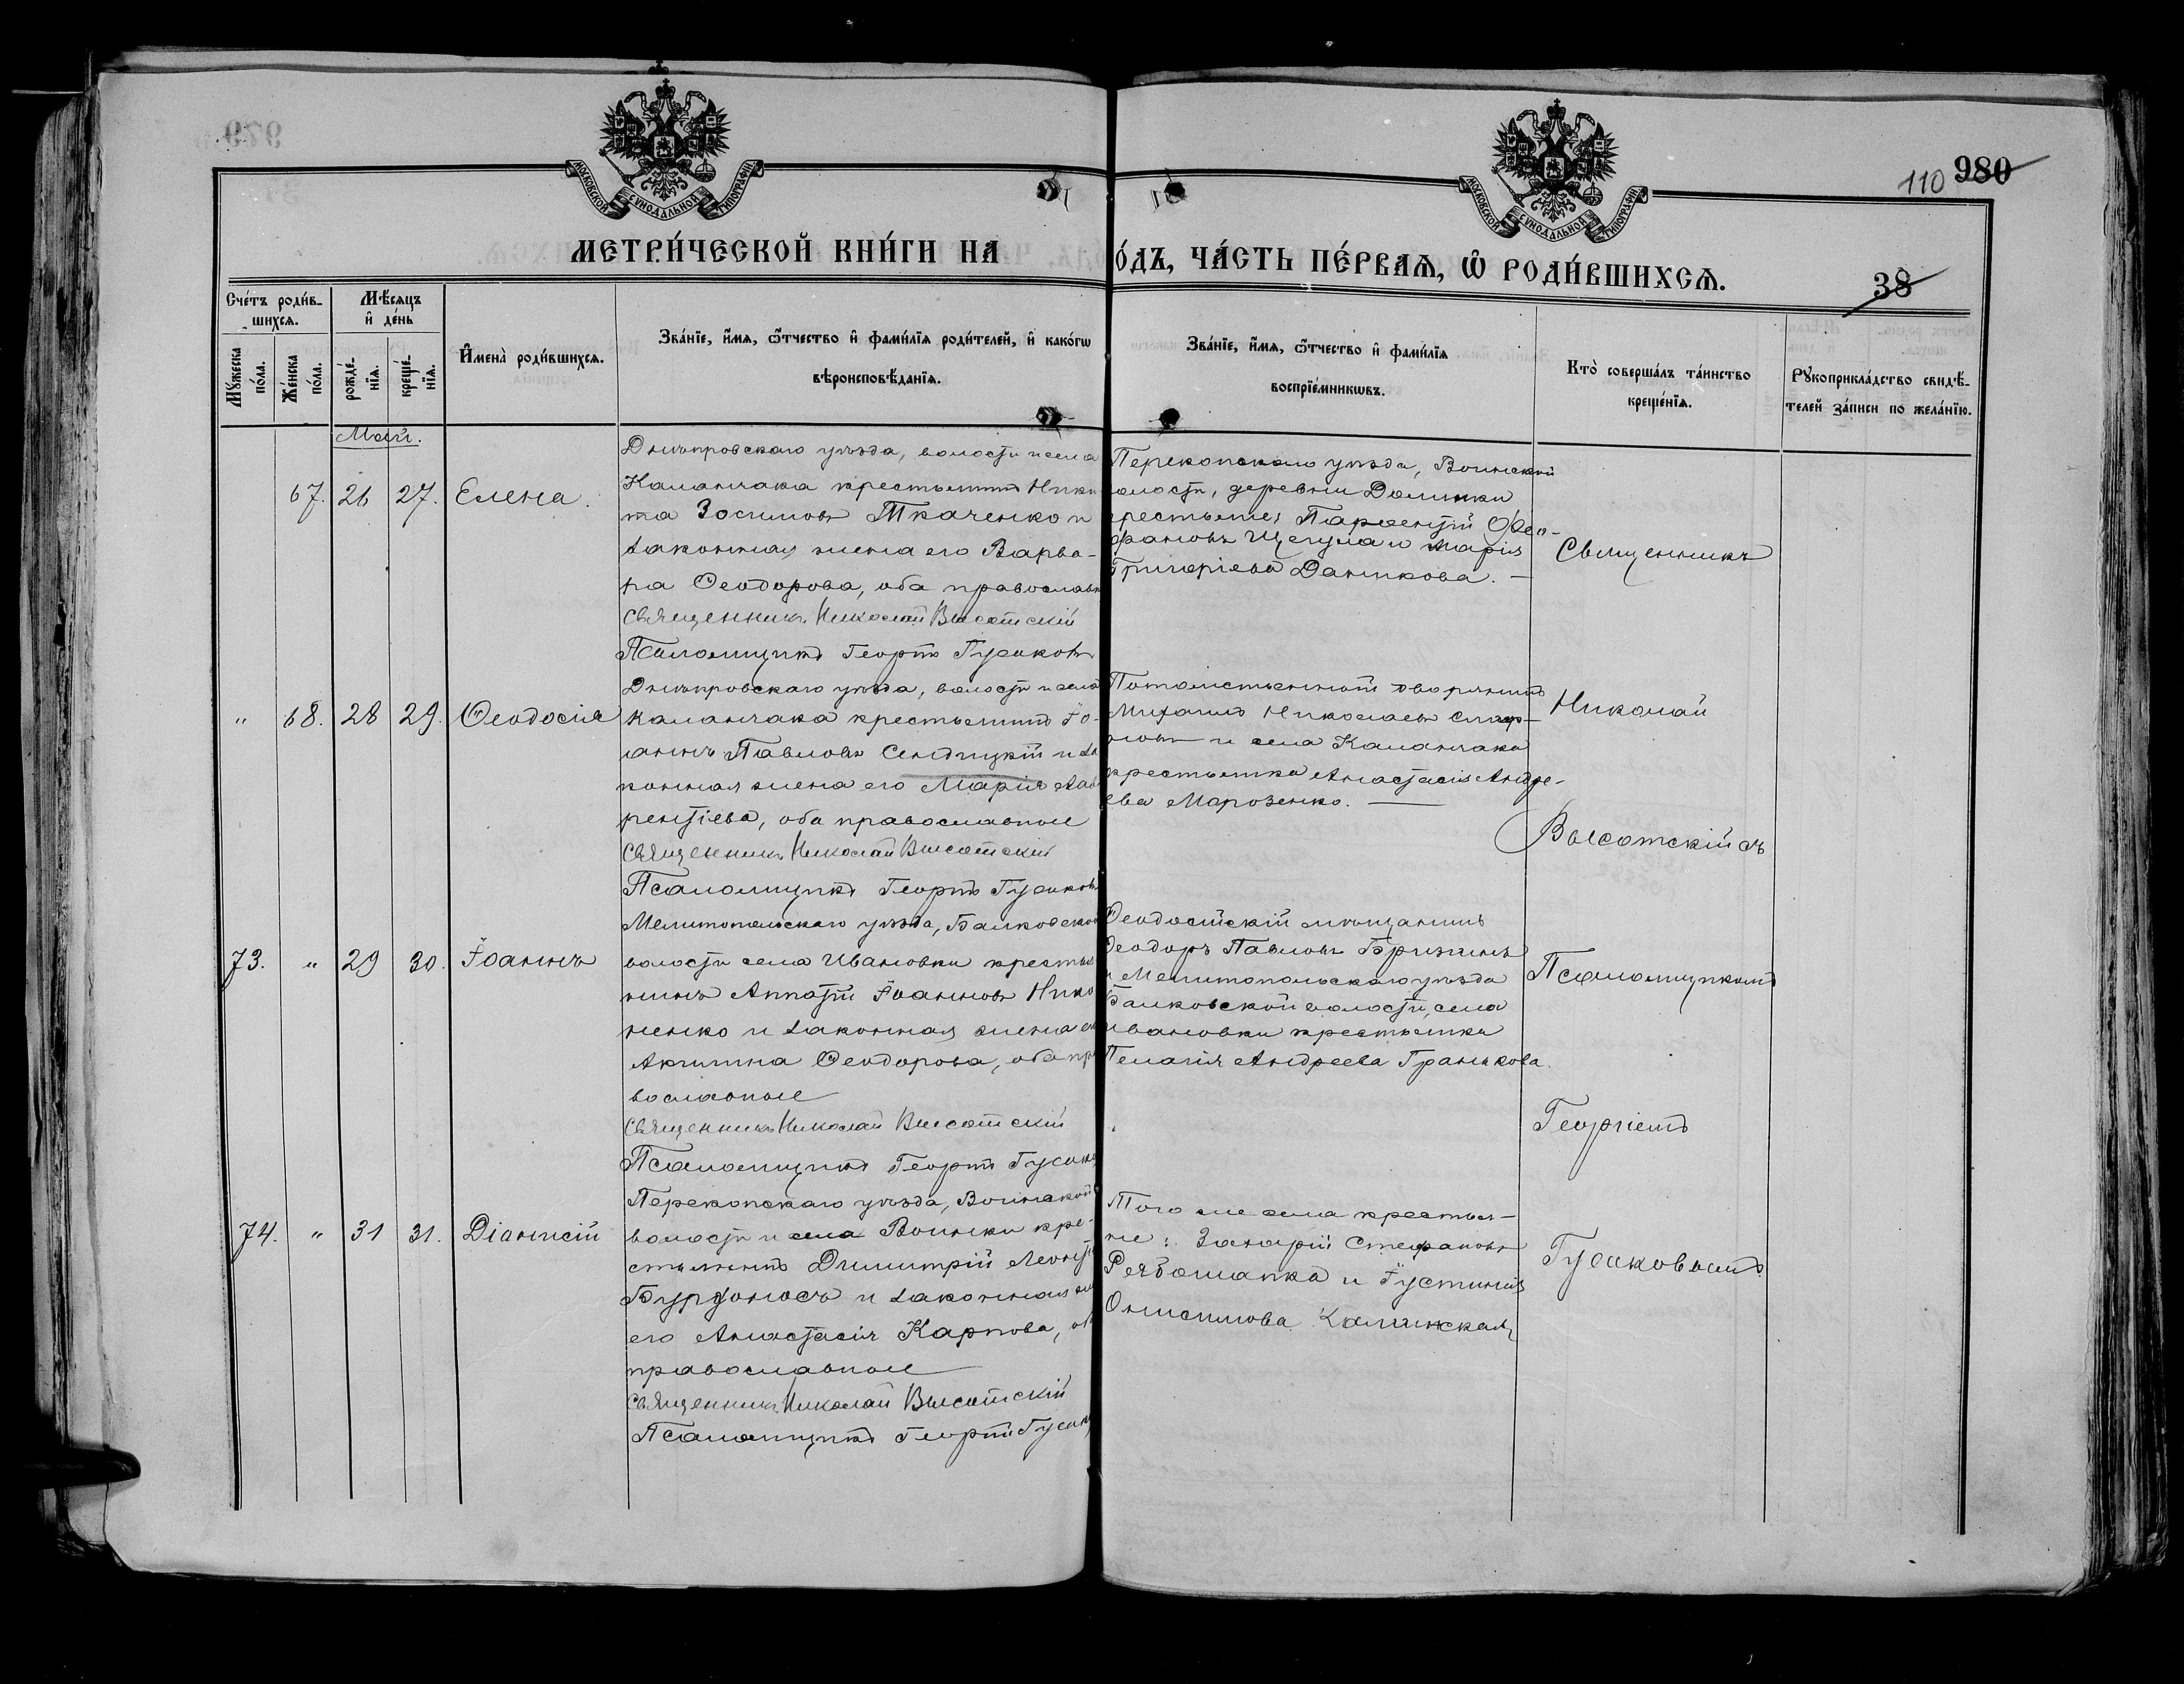 МОСКОВСКОЙ СѴНОДАЛЬНОЙ ТИПОГРАФІИ
МОСКОВСКОЙ СѴНОДАЛЬНОЙ ТИПОГРАФІИ
979
110 980
МЕТРИ́ЧЕСКОЙ КНИ́ГИ НА
О́ДЪ, ЧА́СТЬ ПЕ́РВАѦ, Ѡ РОДИ́ВШИХСѦ.
38
Сче́тъ роди́в-
шихсѧ.
Мѣ́сѧцъ
и҆ де́нь
Мꙋ́жеска
по́ла.
Же́нска
по́ла.
рожде́-
нїѧ.
креще́-
нїѧ.
И҆мена̀ роди́вшихсѧ.
Зва́нїе, и҆́мѧ, ѻ҆́тчество и҆ фами́лїѧ роди́телей, и҆ како́гѡ
вѣроисповѣ́данїѧ.
Зва́нїе, и҆́мѧ, ѻ҆́тчество и҆ фами́лїѧ
воспрїе́мникѡвъ.
Кто̀ соверша́лъ та́инство
креще́нїѧ.
Рꙋкоприкла́дство свидѣ́-
телей за́писи по жела́нїю.
Май.
67. 26 27. Елена.
Днѣпровскаго уѣзда, волости и села
Каланчака крестьянинъ Ники
та Зосимовъ Ткаченко и
законная жена его Варва-
ра Ѳеодорова, оба православн
Священникъ Николай Высотскій
Псаломщикъ Георгій Гусаковъ
Перекопскаго уѣзда, Воинской
олости, деревни Долинки
рестьяне: Парѳентій Ѳео-
фановъ Щегула и Марія
Григоріева Даникова. —
Священникъ
" 68. 28 29. Ѳеодосія
Днѣпровскаго уѣзда, волости и села
Каланчака крестьянинъ Іо-
аннъ Павловъ Сендицкій и за
конная жена его Марія Лав
рентіева, оба православные
Священникъ Николай Высотскій
Псаломщикъ Георгій Гусаковъ
Потомственный дворянинъ
Михаилъ Николаевъ Смир-
новъ и села Каланчака
крестьянка Анастасія Андре-
ева Марозенко. —
Николай
Высотскій съ
73. " 29 30. Іоаннъ
Мелитопольскаго уѣзда, Балковской
волости села Ивановки крестья
нинъ Ипатій Іоанновъ Нико
ненко и законная жена ег
Акилина Ѳеодорова, оба пра
вославные
Священникъ Николай Высотскій
Псаломщикъ Георгій Гусаков
Ѳеодосійскій мѣщанинъ
Ѳеодоръ Павловъ Брижинъ
и Мелитопольскаго уѣзда
Балковской волости, села
Ивановки крестьянка
Пелагія Андреева Гранькова.
Псаломщикомъ
Георгіемъ
74. " 31 31. Діонисій
Перекопскаго уѣзда, Воинской
волости и села Воинки кре-
стьянинъ Димитрій Леонті
Бурдоносъ и законная же
его Анастасія Карпова, об
православные
Священникъ Николай Высотскій
Псаломщикъ Георгій Гусак
Того же села крестья-
не: Захарій Стефановъ
Рябошапка и Іустинія
Онисимова Калинская
Гусаковымъ.